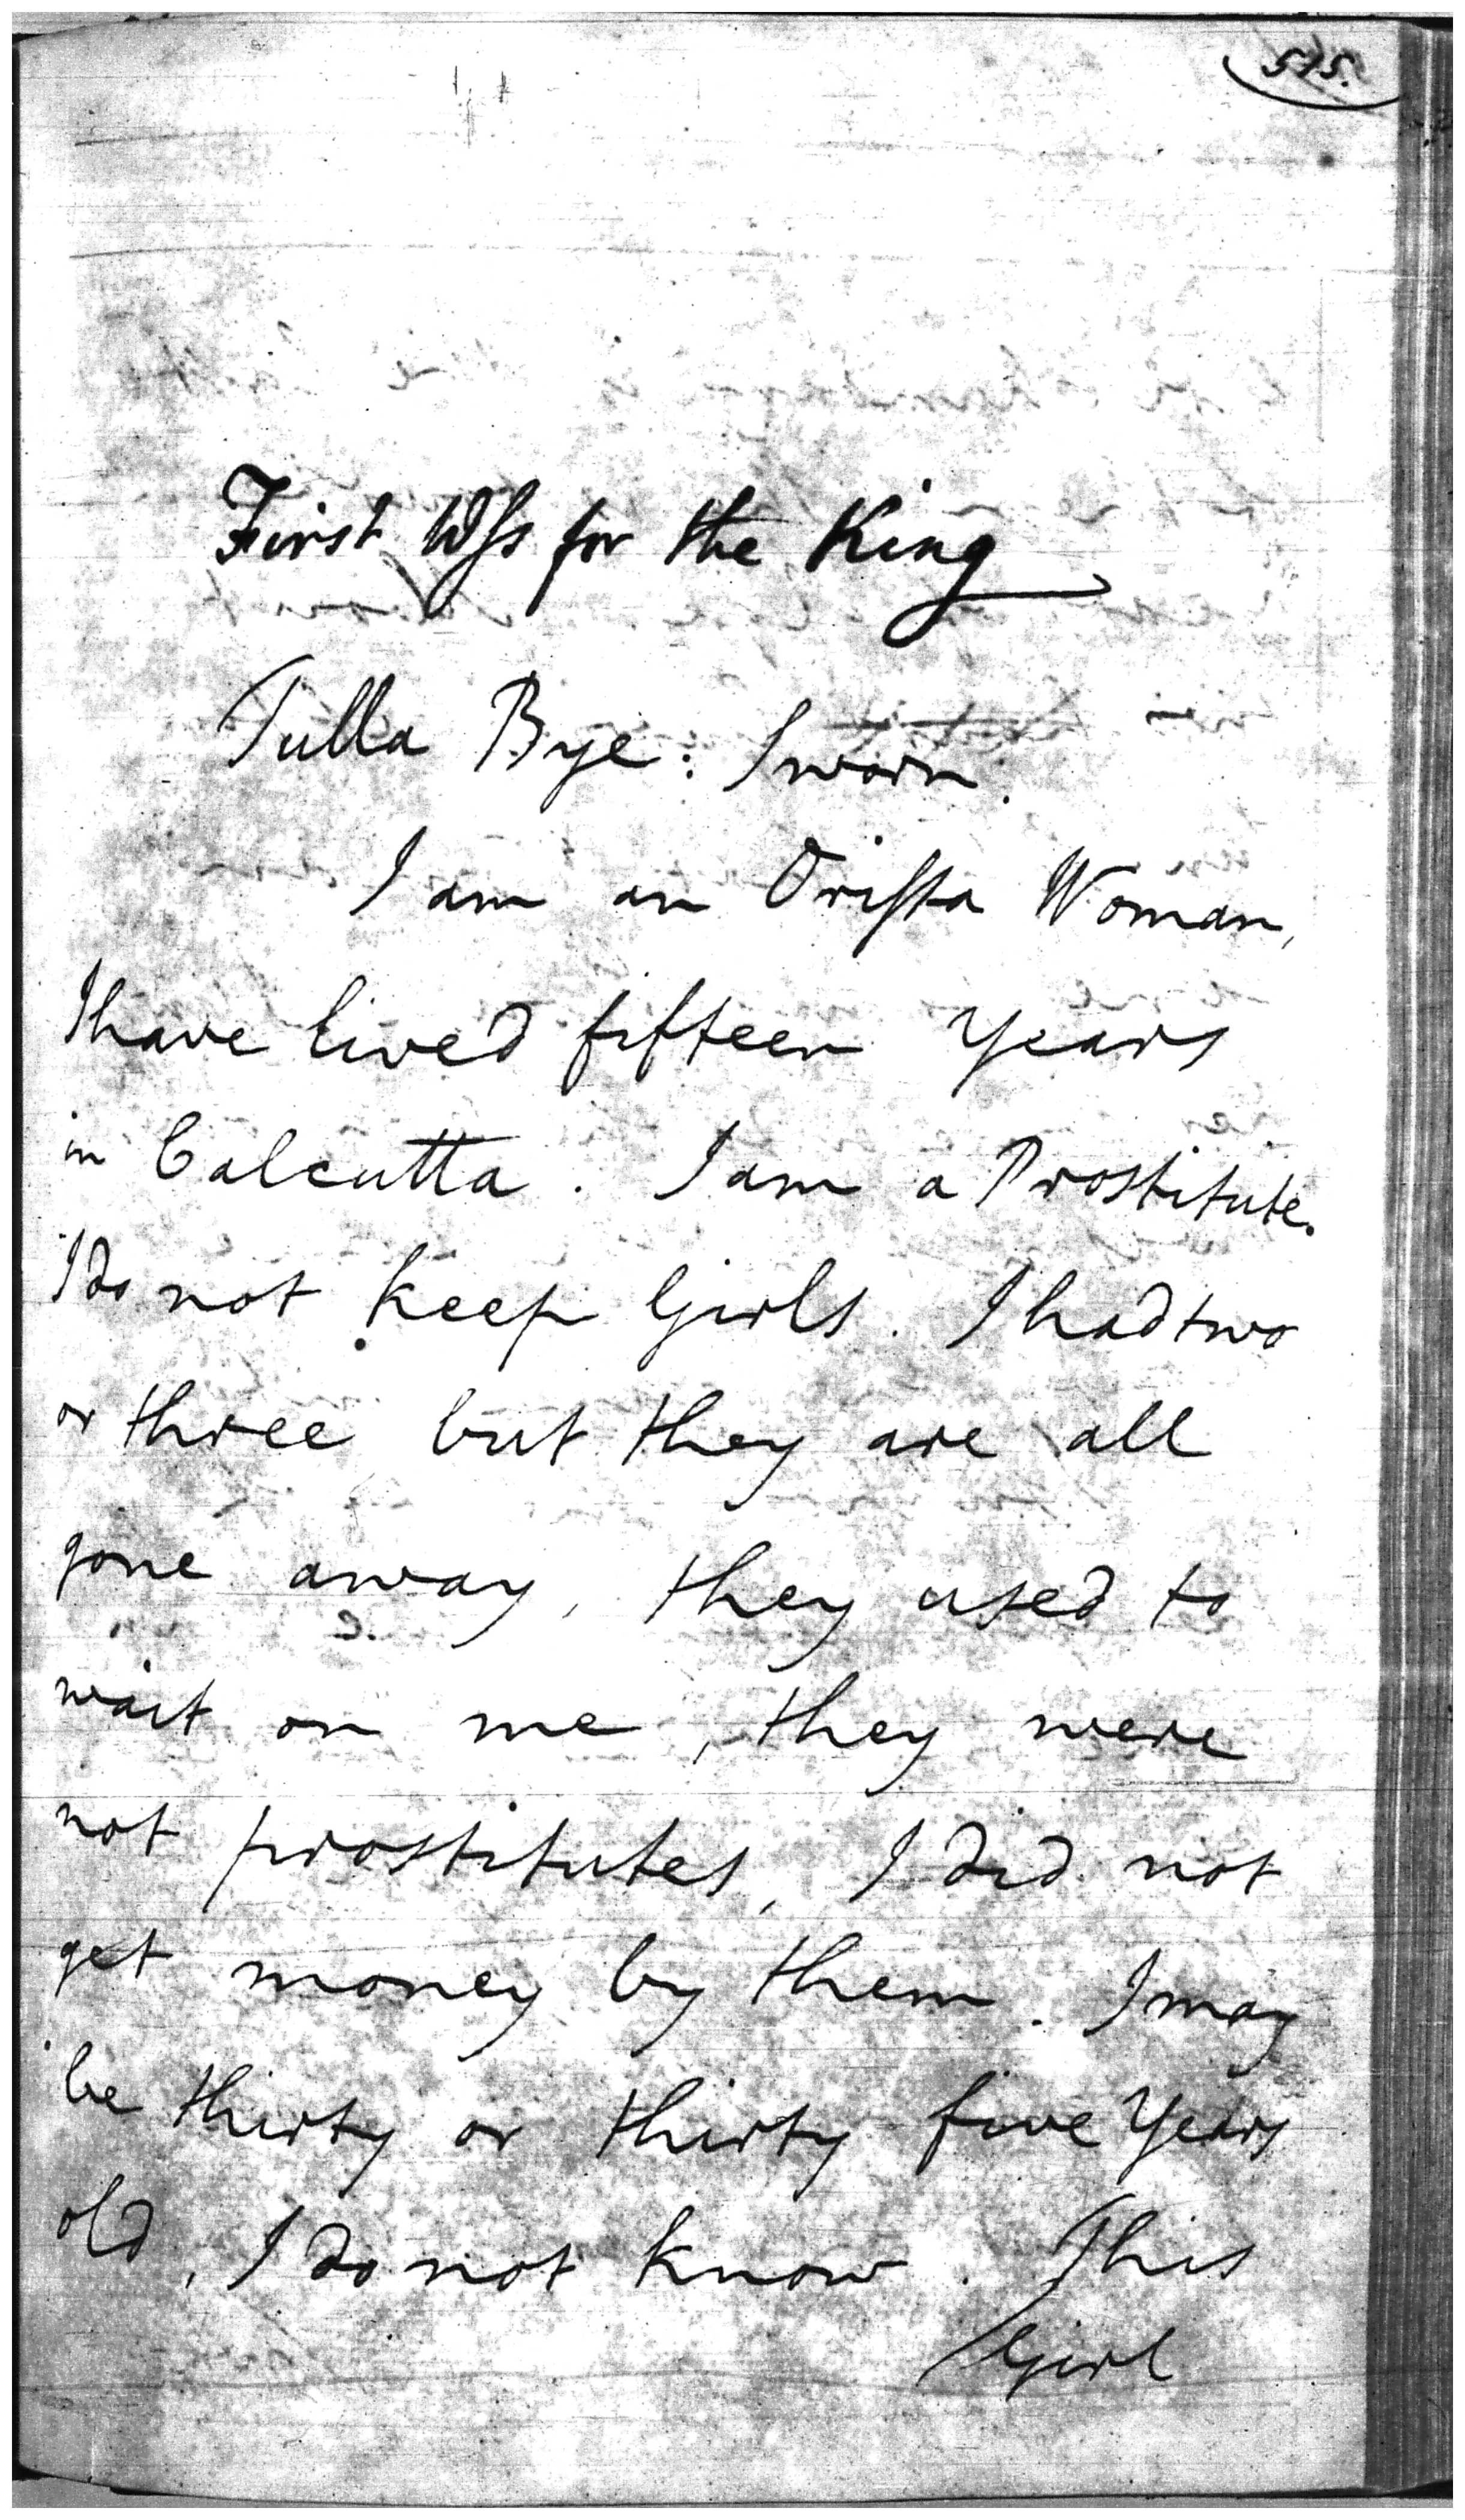 515.
First Wss for the King
Tulla Bye: Sworn.
I am an Orissa Woman,
I have lived fifteen Years
in Calcutta. I am a Prostitute.
I do not keep Girls. I had two
or three but they are all
gone away, they used to
wait on me, they were
not prostitutes, I did not
get money by them. I may
be thirty or thirty five Years
old, I do not know. This
Girl